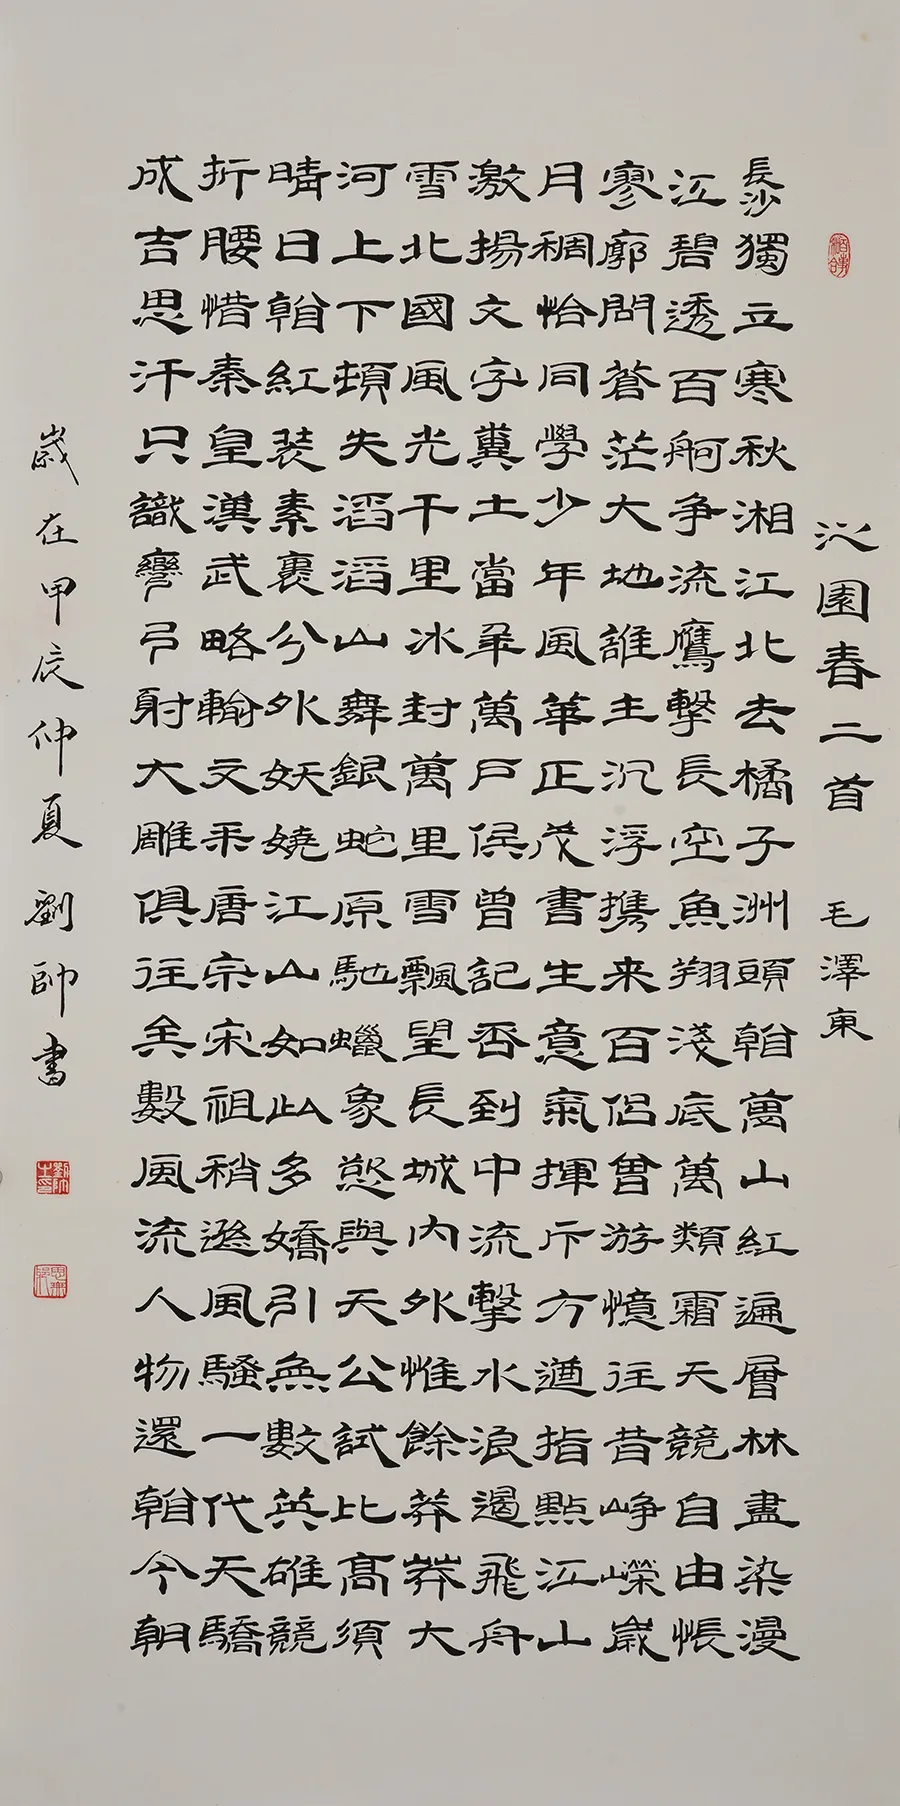 沁園春二首 毛澤東
長沙獨立寒秋湘江北去橘子洲頭看萬山紅遍層林盡染漫
江碧透百舸争流鷹擊長空魚翔淺底萬類霜天競自由悵
寥廓問蒼茫大地誰主沉浮携来百侣曾游憶往昔崢嶸歲
月稠恰同學少年風華正茂書生意氣揮斥方遒指點江山
激揚文字糞土當年萬户侯曾記否到中流擊水浪遏飛舟
雪北國風光千里冰封萬里雪飄望長城内外惟餘莽莽大
河上下頓失滔滔山舞銀蛇原馳蠟象慾與天公試比高須
晴日看紅裝素裹分外妖嬈江山如此多嬌引無數英雄競
折腰惜秦皇漢武略輸文采唐宗宋祖稍遜風騷一代天驕
成吉思汗只識彎弓射大雕俱往矣數風流人物還看今朝
歲在甲辰仲夏劉帥書